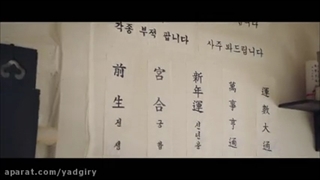 습니다
각종 부적 팝니다
사주 파드립니다
前生 전생
宮合 궁합
新年運 신년운
萬事亨通
運數大通
aparat.com/yadgiry